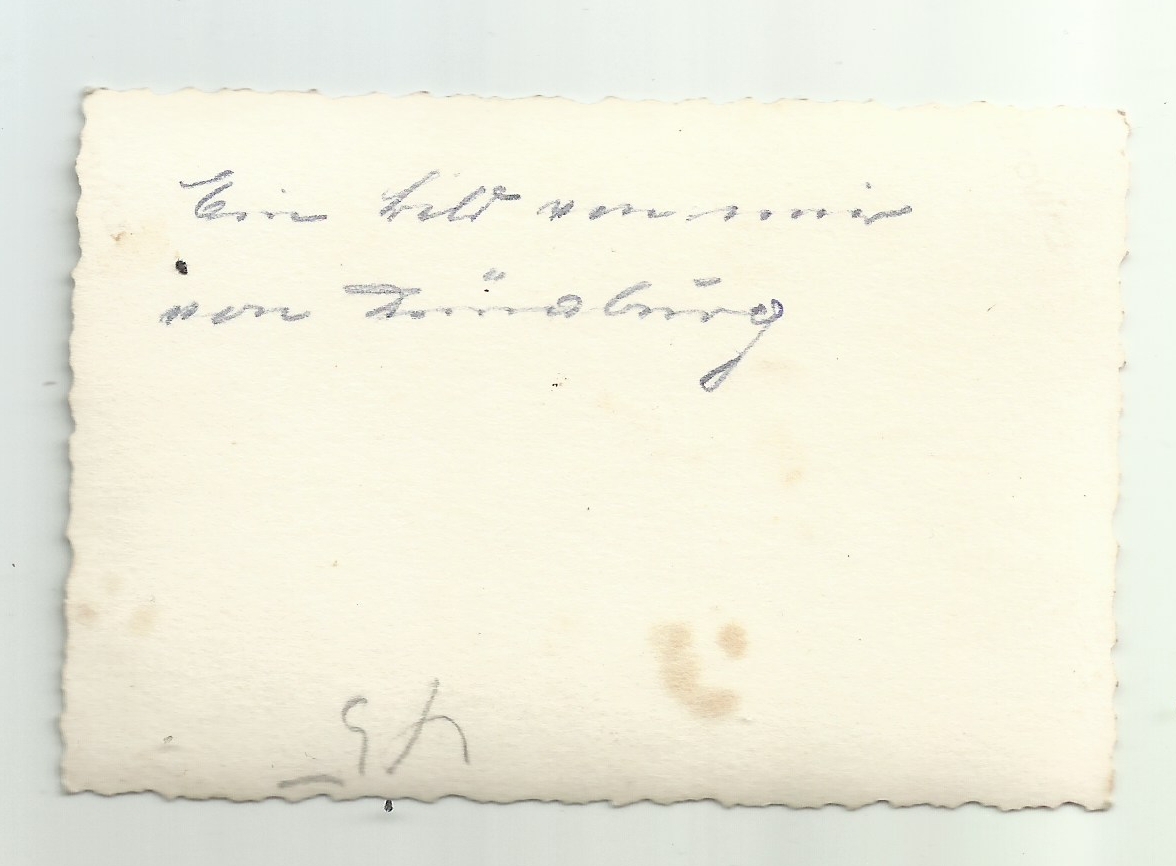 Ein bild von mir
von Dünaburg